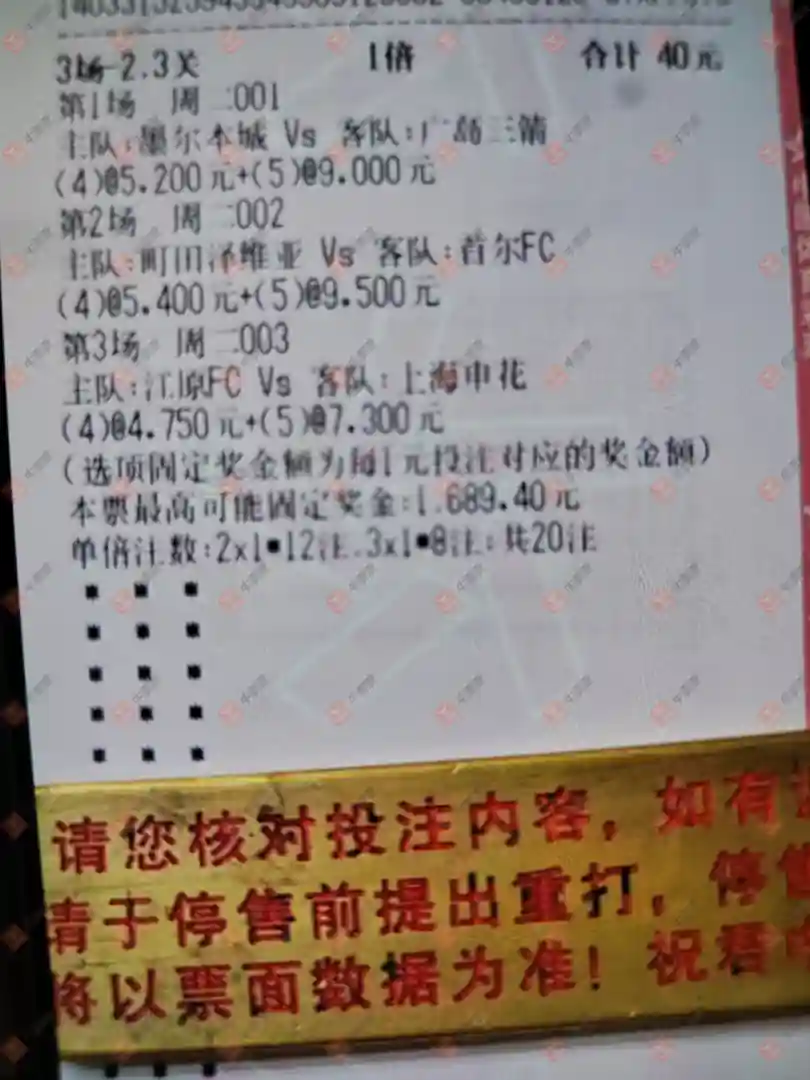 3场-2.3关 1倍 合计 40元
第1场 周二001
主队:墨尔本城 Vs 客队:广岛三箭
(4)@5.200元+(5)@9.000元
第2场 周二002
主队:町田泽维亚 Vs 客队:首尔FC
(4)@5.400元+(5)@9.500元
第3场 周二003
主队:江原FC Vs 客队:上海申花
(4)@4.750元+(5)@7.300元
(选项固定奖金额为每1元投注对应的奖金额)
本票最高可能固定奖金:1,689.40元
单倍注数:2x1*12注,3x1*8注;共20注
请您核对投注内容，如有
请于停售前提出重打，停售
将以票面数据为准！祝君中